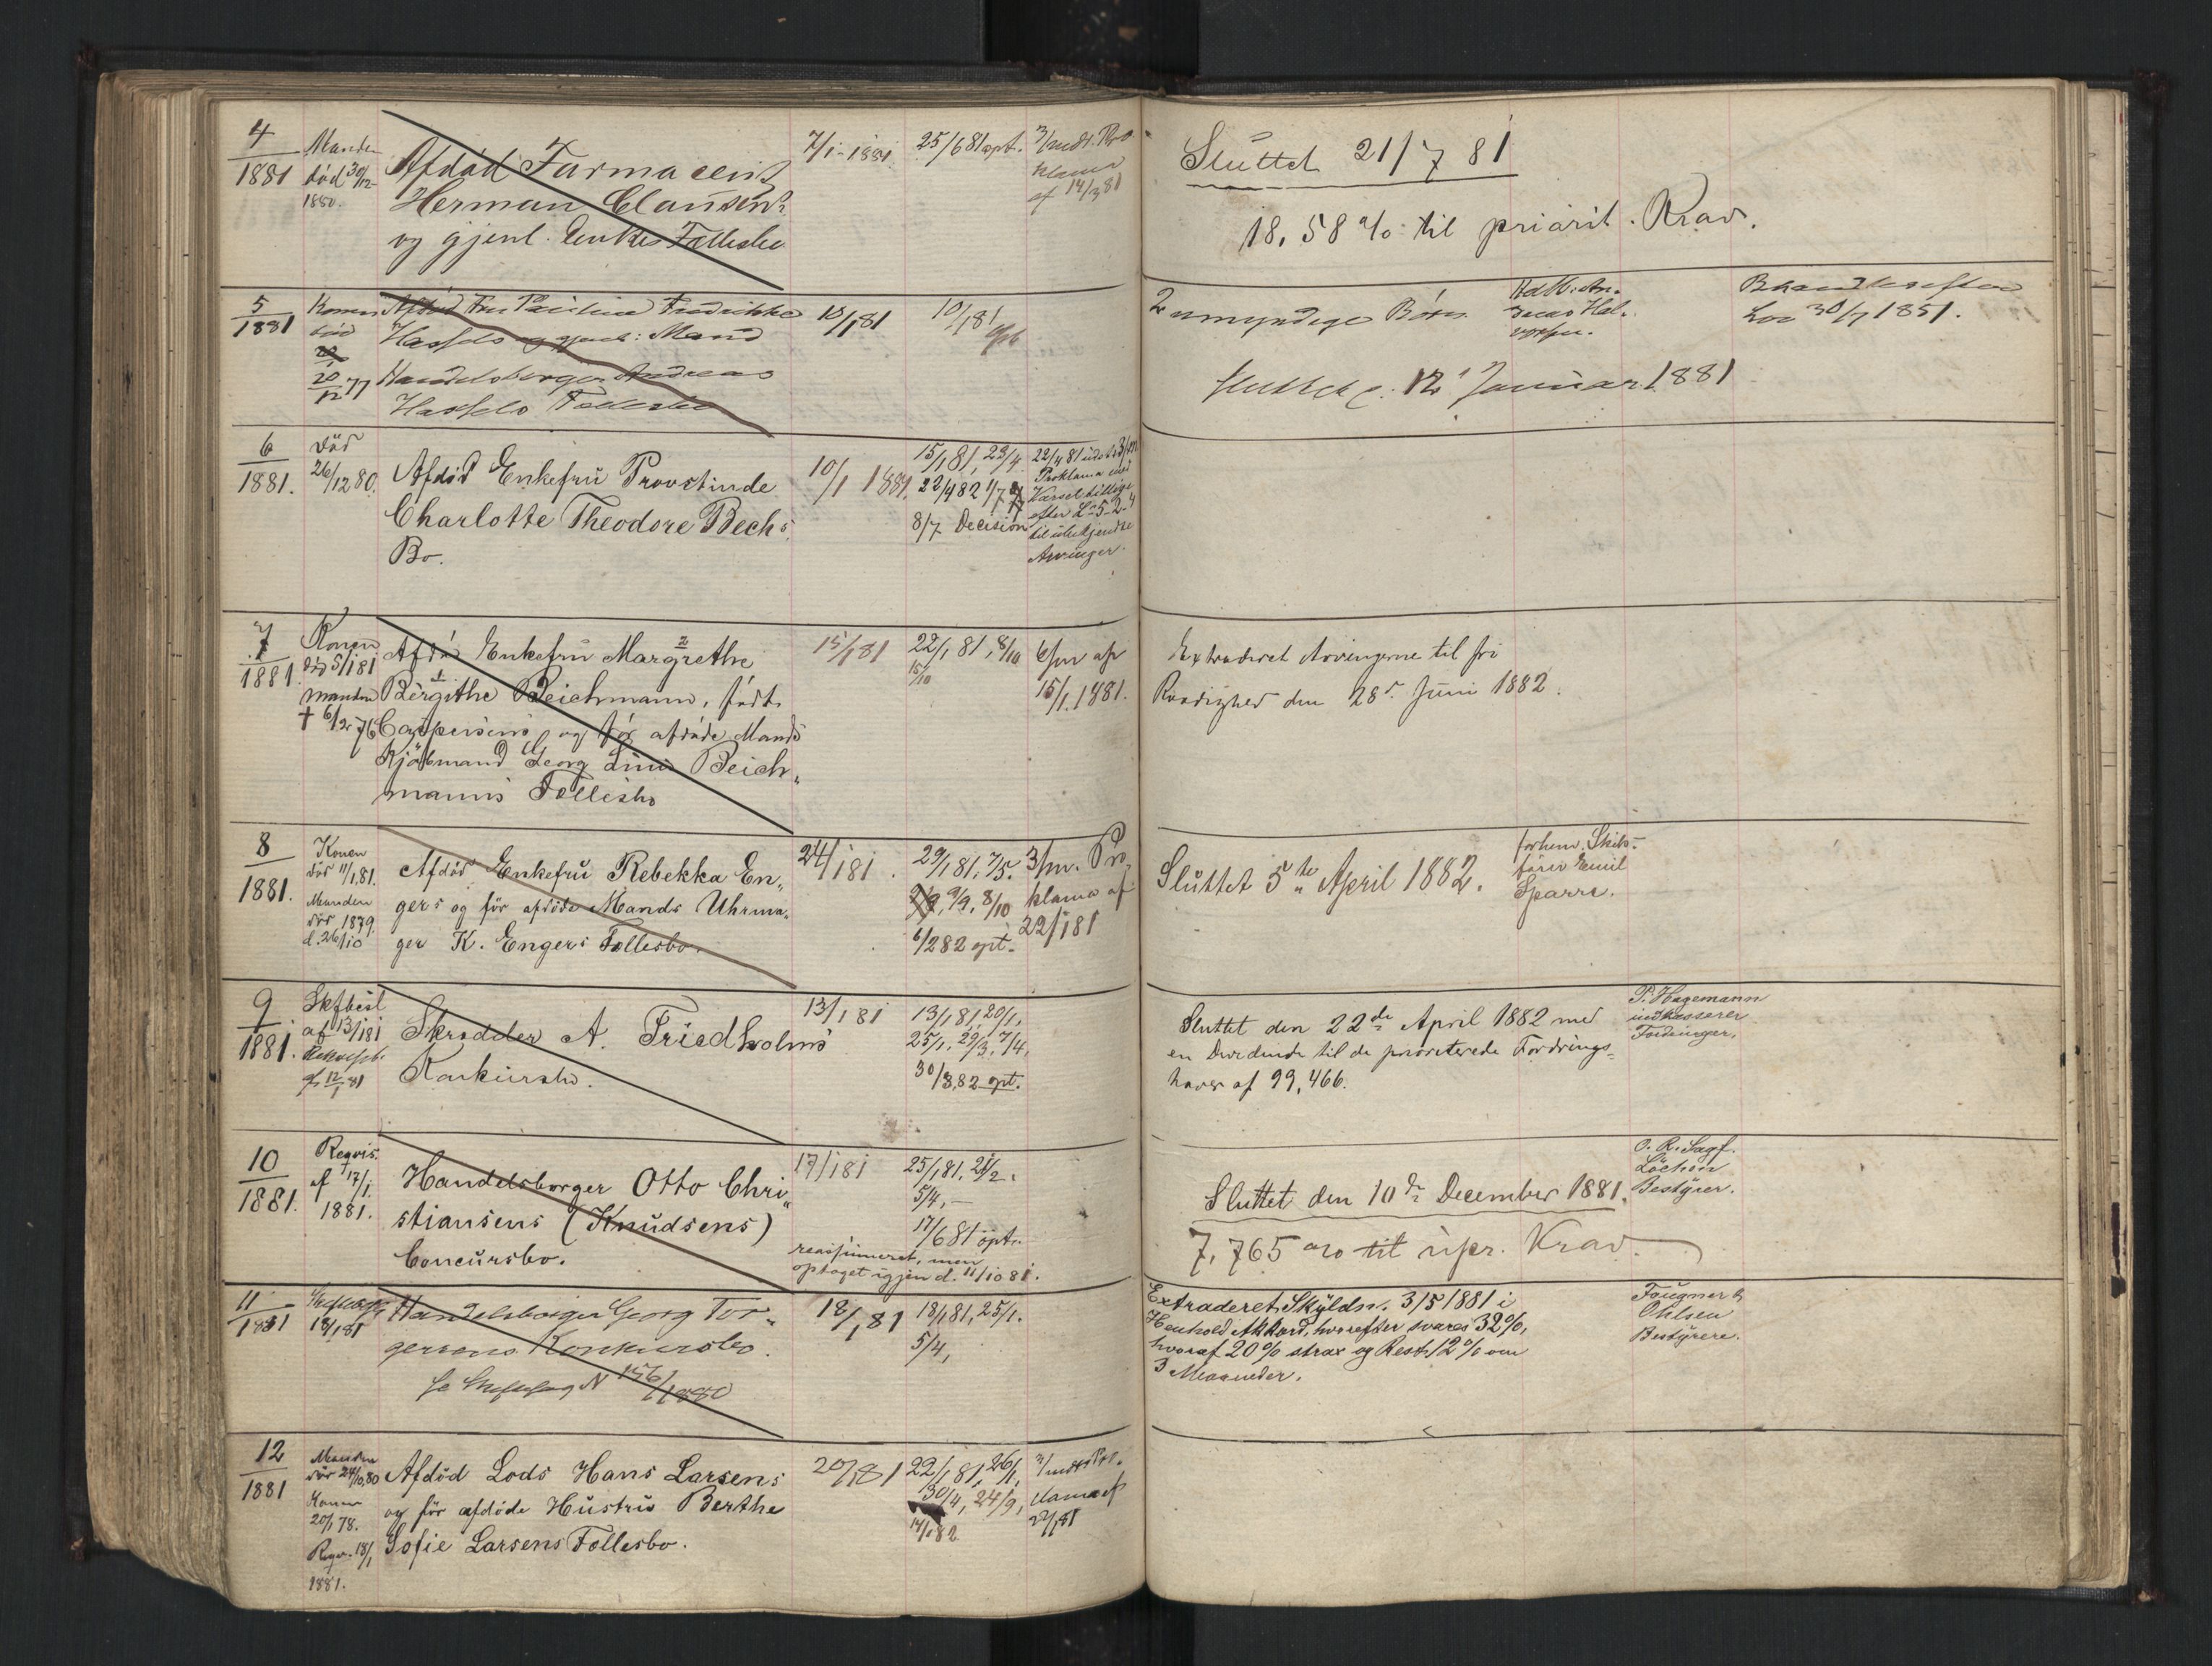 4
1881
Manden
död 30/12
1880.
Afdöd Farmaceut
Herman Clausens
og gjenl. Enkes Fællesbo
7/1-1881
25/6 81 opt.
3/mdr. Pro
klama
af 14/3 81
Sluttet 21/7 81
18,58 % til priorit. Krav.
5
1881
Konen
död
20/12 77
Afdöd Fru Pauline Fredrikke
Hassels og gjenl: Mand
Handelsborger Andreas
Hassels Fællesbo
10/1 81
10/1 81
2 umyndige Börn
Behandles efter
Lov 30/7 1851.
Sluttet d. 12 Januar 1881
6
1881.
Död
26/12 80.
Afdöd Enkefru Provstinde
Charlotte Theodore Bechs
Bo.
10/1 1881.
15/1 81, 23/4
22/4 82 1/7
8/7 Decision
22/4 81 udst. 3/m
Proklama med
Varsel tillige
efter L-5-2-4
til ubekjendte
Arvinger.
7
1881.
Konen
död 5/1 81
Manden
† 6/2 76
Afdöd Enkefru Margrethe
Bergithe Beichmann, födt
Caspersens og för afdöde Mands
Kjöbmand Georg Linus Beich„
manns Fællesbo
15/1 81
22/1 81, 8/10
15/10
6/m af
15/1. 1881.
Extraderet Arvingerne til fri
Raadighed den 28de Juni 1882.
8
1881.
Konen
död 11/1 81.
Manden
död 1879.
d. 26/10
Afdöd Enkefru Rebekka En„
gers og för afdöde Mands Uhrma„
ger K. Engers Fællesbo.
24/1 81.
29/1 81, 7/5.
9/9, 8/10
6/2 82 opt.
3/m. Pro„
klama af
22/1 81
Sluttet 5te April 1882.
forhenv. Skibs-
förer Emil
Sparre.
9
1881.
Skfbesl
af 13/1 81
af 12/1 81
Skrædder A. Friedholms
Konkursbo.
13/1 81
13/1 81, 20/1,
25/1, 29/3, 7/4,
30/3 82 opt.
Sluttet den 22de April 1882 med
en Dividende til de prioriterede Fordrings-
haver af 99,466.
P. Hagemann
indkasserer
Fordringer.
10
1881.
Reqvis.
af 17/1
1881.
Handelsborger Otto Chri„
stiansens (Knudsens)
Concursbo.
17/1 81
25/1 81, 21/2.
5/4, —
17/6 81 opt.
reassumeret, men
optaget igjen d. 11/10 81.
Sluttet den 10de December 1881.
7,765 % til upr. Krav.
O. R. Sagf.
Löchen
Bestyrer.
11
1881
18/1 81
Handelsborger Georg Tor„
gersens Konkursbo.
se Skiftesag N 156/1880
18/1 81
18/1 81, 25/1.
5/4,
Extraderet Skyldn. 3/5 1881 i
Henhold Akkord, hvorefter svares 32%,
hvoraf 20% strax og Rest. 12% om
3 Maaneder.
Fougner &
Ohlsen
Bestyrere.
12
1881
Manden
död 24/10.80
Konen
20/1 78.
Reqv. 18/1
1881.
Afdöd Lods Hans Larsens
og för afdöde Hustru Berthe
Sofie Larsens Fællesbo.
20/1 81
22/1 81, 26/1,
30/4, 24/9,
14/1 82
3/mdrs Pro.
klama af
22/1 81